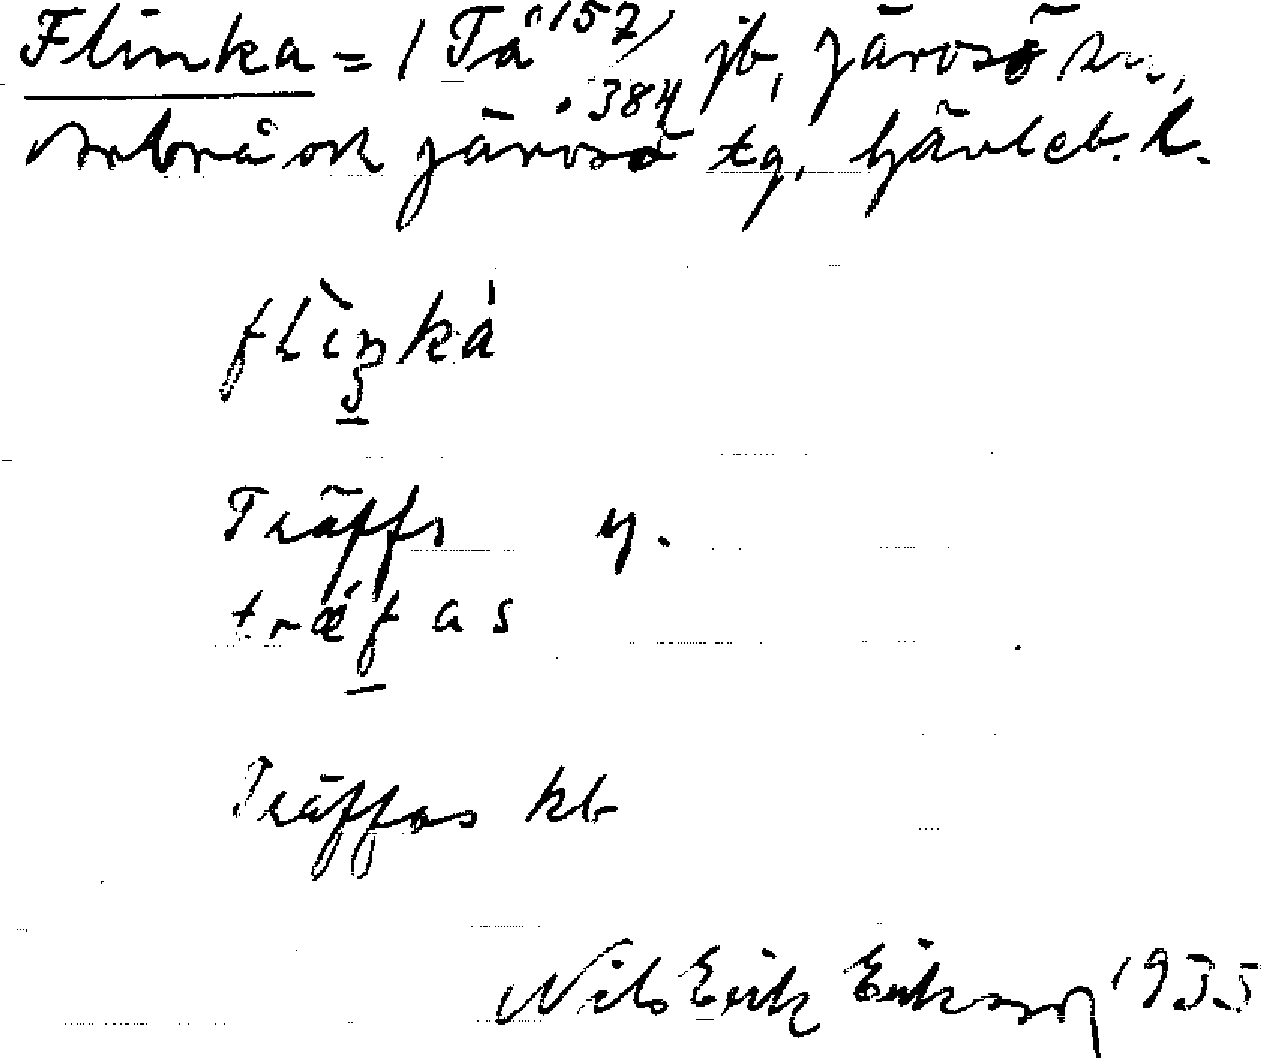 Flinka = (Tå 157/384 jb, Järvsö sn,
Arbrå och Järvsö tg, Gävleb. l.
flìŋká
Träffs y.
träfas
Träffas kb
Nils Erik Eriksson 1935